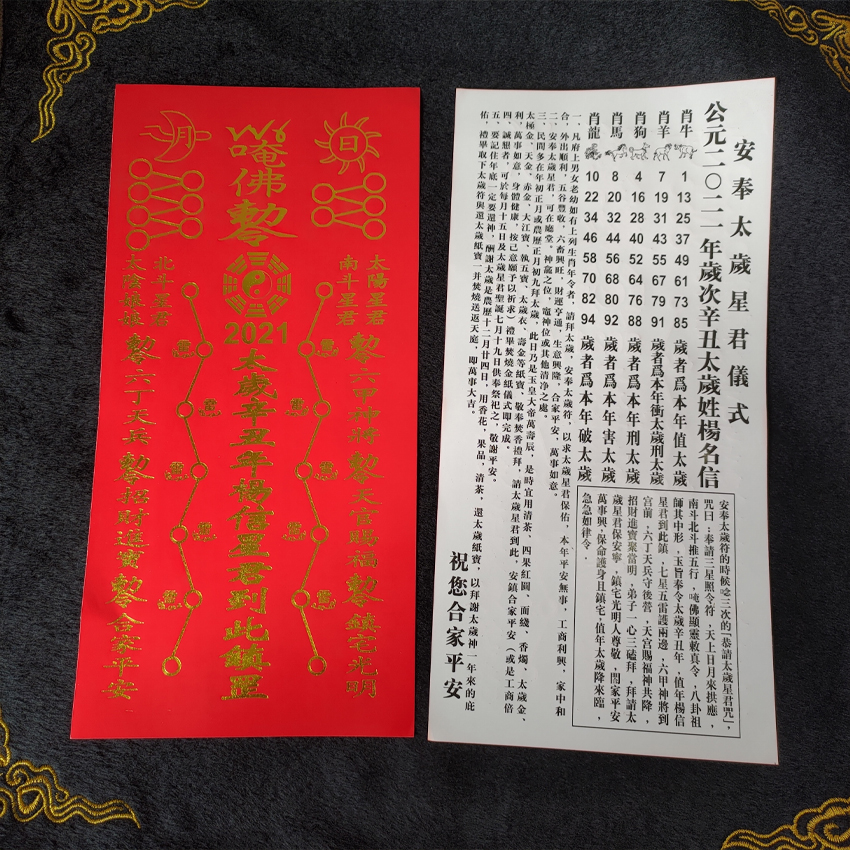 日
太陽星君
南斗星君
勅六甲神將
勅天官賜福
勅鎮宅光明
唵佛勅
2021
太歲辛丑年楊信星君到此鎮罡
月
北斗星君
太陰娘娘
勅六丁天兵
勅招財進寶
勅合家平安
安奉太歲星君儀式
公元二〇二一年歲次辛丑太歲姓楊名信
肖牛 1 13 25 37 49 61 73 85 歲者爲本年值太歲
肖羊 7 19 31 43 55 67 79 91 歲者爲本年衝太歲刑太歲
肖狗 4 16 28 40 52 64 76 88 歲者爲本年刑太歲
肖馬 8 20 32 44 56 68 80 92 歲者爲本年害太歲
肖龍 10 22 34 46 58 70 82 94 歲者爲本年破太歲
一、凡府上男女老幼如有上列生肖年令者，請拜太歲，安奉太歲符，以求太歲星君保佑，本年平安無事，工商利興，家中和
合，外出順利，五谷豐收，六畜興旺，財運亨通，生意興隆，合家平安，萬事如意。
二、安奉太歲星君，可在廳堂。神龕之位，竈神位或其他清净之處。
三、民間多在年初正月或農歷正月初九拜太歲，此日乃是玉皇大帝萬壽辰，是時宜用清茶、四果紅圓、面綫、香燭、太歲金、
太極金、天金、赤金、大江寶、執五寶、太歲衣、壽金等紙寶、敬奉焚香禮拜，請太歲星君到此，安鎮合家平安（或是工商倍
利，萬事如意，身體健康，按己意願予以祈求）禮畢焚燒金紙儀式即完成。
四、誠懇者，可於每月十五日及太歲星君聖誕七月十九日供奉祭祀之，敬謝平安。
五、要記住年底一定要還神，酬謝太歲是農歷十二月廿四日，用香花，果品，清茶，還太歲紙寶，以拜謝太歲神一年來的庇
佑，禮畢取下太歲符與還太歲紙寶一并焚燒送返天庭，即萬事大吉。
安奉太歲符的時候唸三次的『恭請太歲星君咒』，
咒曰：奉請三星照令符，天上日月來拱應，
南斗北斗推五行，唵佛顯靈敕真令，八卦祖
師其中形，玉旨奉令太歲辛丑年，值年楊信
星君到此鎮，七星五雷護兩邊，六甲神將到
宮前，六丁天兵守後營，天宮賜福神共降，
招財進寶聚當明，弟子一心三磕拜，拜請太
歲星君保安寧，鎮宅光明人尊敬，閤家平安
萬事興，保命護身且鎮宅，值年太歲降來臨，
急急如律令。
祝您合家平安